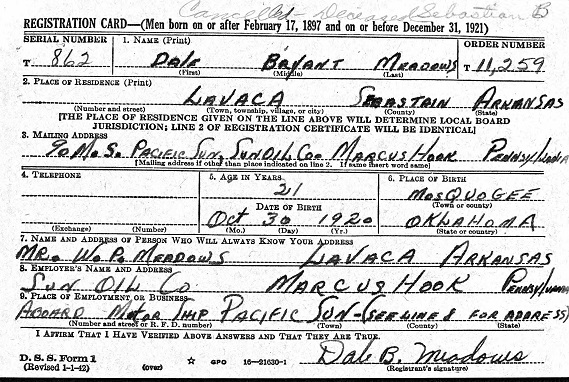 Cancelled - Deceased Sebastian B
REGISTRATION CARD—(Men born on or after February 17, 1897 and on or before December 31, 1921)
SERIAL NUMBER 1. NAME (Print) ORDER NUMBER
T 862 DALE BRYANT MEADOWS T 11,259
(First) (Middle) (Last)
2. PLACE OF RESIDENCE (Print)
LAVACA SEBASTAIN ARKANSAS
(Number and street) (Town, township, village, or city) (County) (State)
[THE PLACE OF RESIDENCE GIVEN ON THE LINE ABOVE WILL DETERMINE LOCAL BOARD
JURISDICTION; LINE 2 OF REGISTRATION CERTIFICATE WILL BE IDENTICAL]
3. MAILING ADDRESS
% M. S. PACIFIC SUN, SUN OIL CO. MARCUS HOOK PENNSYLVANIA
[Mailing address if other than place indicated on line 2. If same insert word same]
4. TELEPHONE 5. AGE IN YEARS 6. PLACE OF BIRTH
21 MOSQUOGEE
DATE OF BIRTH (Town or county)
OCT 30 1920 OKLAHOMA
(Exchange) (Number) (Mo.) (Day) (Yr.) (State or country)
7. NAME AND ADDRESS OF PERSON WHO WILL ALWAYS KNOW YOUR ADDRESS
MR. W. P. MEADOWS LAVACA ARKANSAS
8. EMPLOYER'S NAME AND ADDRESS
SUN OIL CO MARCUS HOOK PENNSYLVANIA
9. PLACE OF EMPLOYMENT OR BUSINESS
ABOARD MOTOR SHIP PACIFIC SUN - (SEE LINE 8 FOR ADDRESS)
(Number and street or R. F. D. number) (Town) (County) (State)
I AFFIRM THAT I HAVE VERIFIED ABOVE ANSWERS AND THAT THEY ARE TRUE.
D. S. S. Form 1 Dale B. Meadows
(Revised 1-1-42) (over) ☆ GPO 16—21630-1 (Registrant's signature)